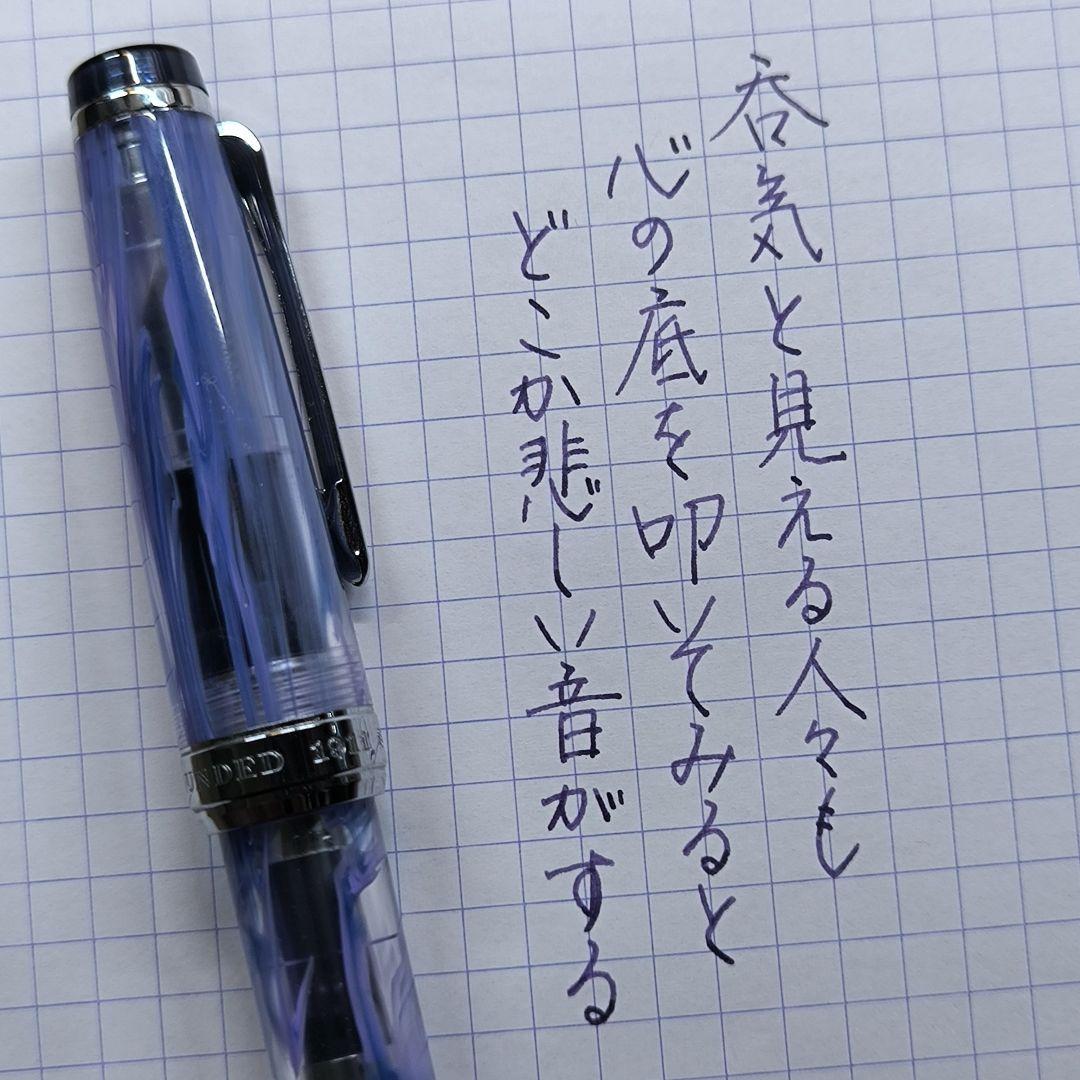 呑気と見える人々も
心の底を叩いてみると
どこか悲しい音がする
UNDED 1911